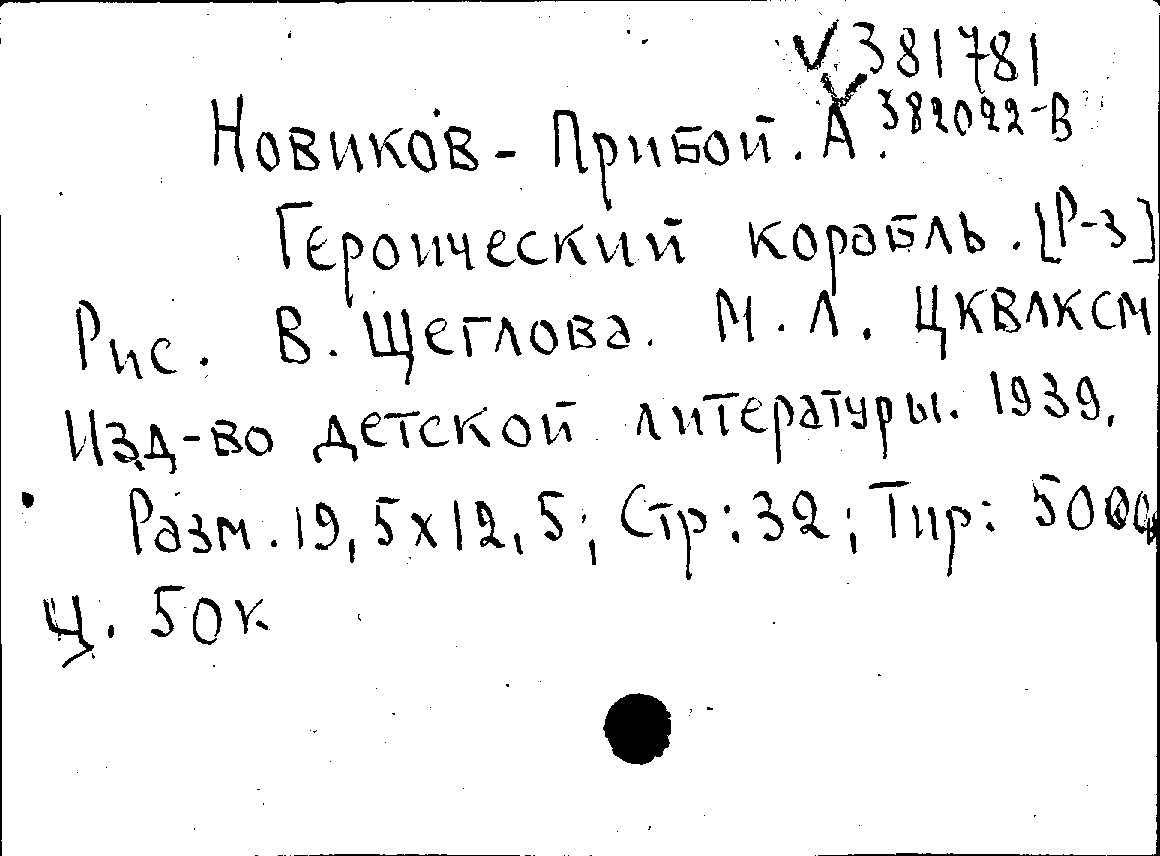 381781
382022-В
Новиков-Прибой. А.
Героический корабль. [Р-з]
Рис. В. Щеглова. М. Л. ЦКВЛКСМ
Изд-во детской литературы. 1939.
Разм. 19,5x12,5; Стр: 32; Тир:
Ц. 50к